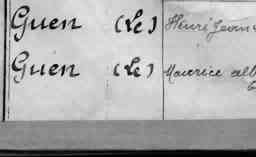 Guen (Le) Henri Jean
Guen (Le) Maurice alb